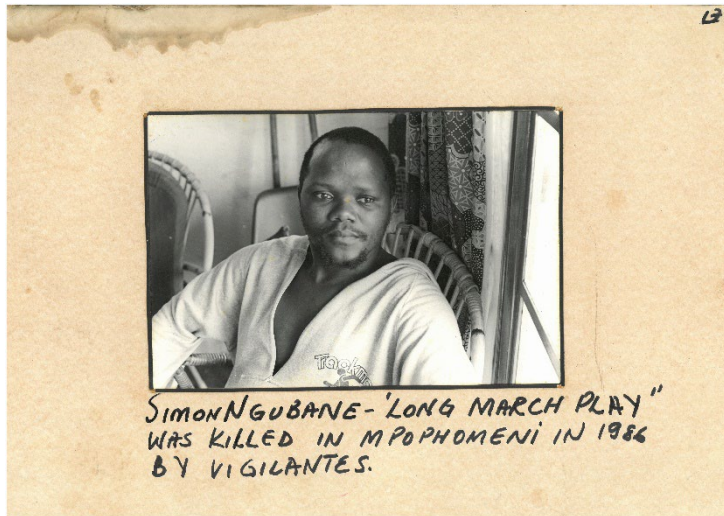 13
SIMON NGUBANE - 'LONG MARCH PLAY"
WAS KILLED IN MPOPHOMENI IN 1986
BY VIGILANTES.